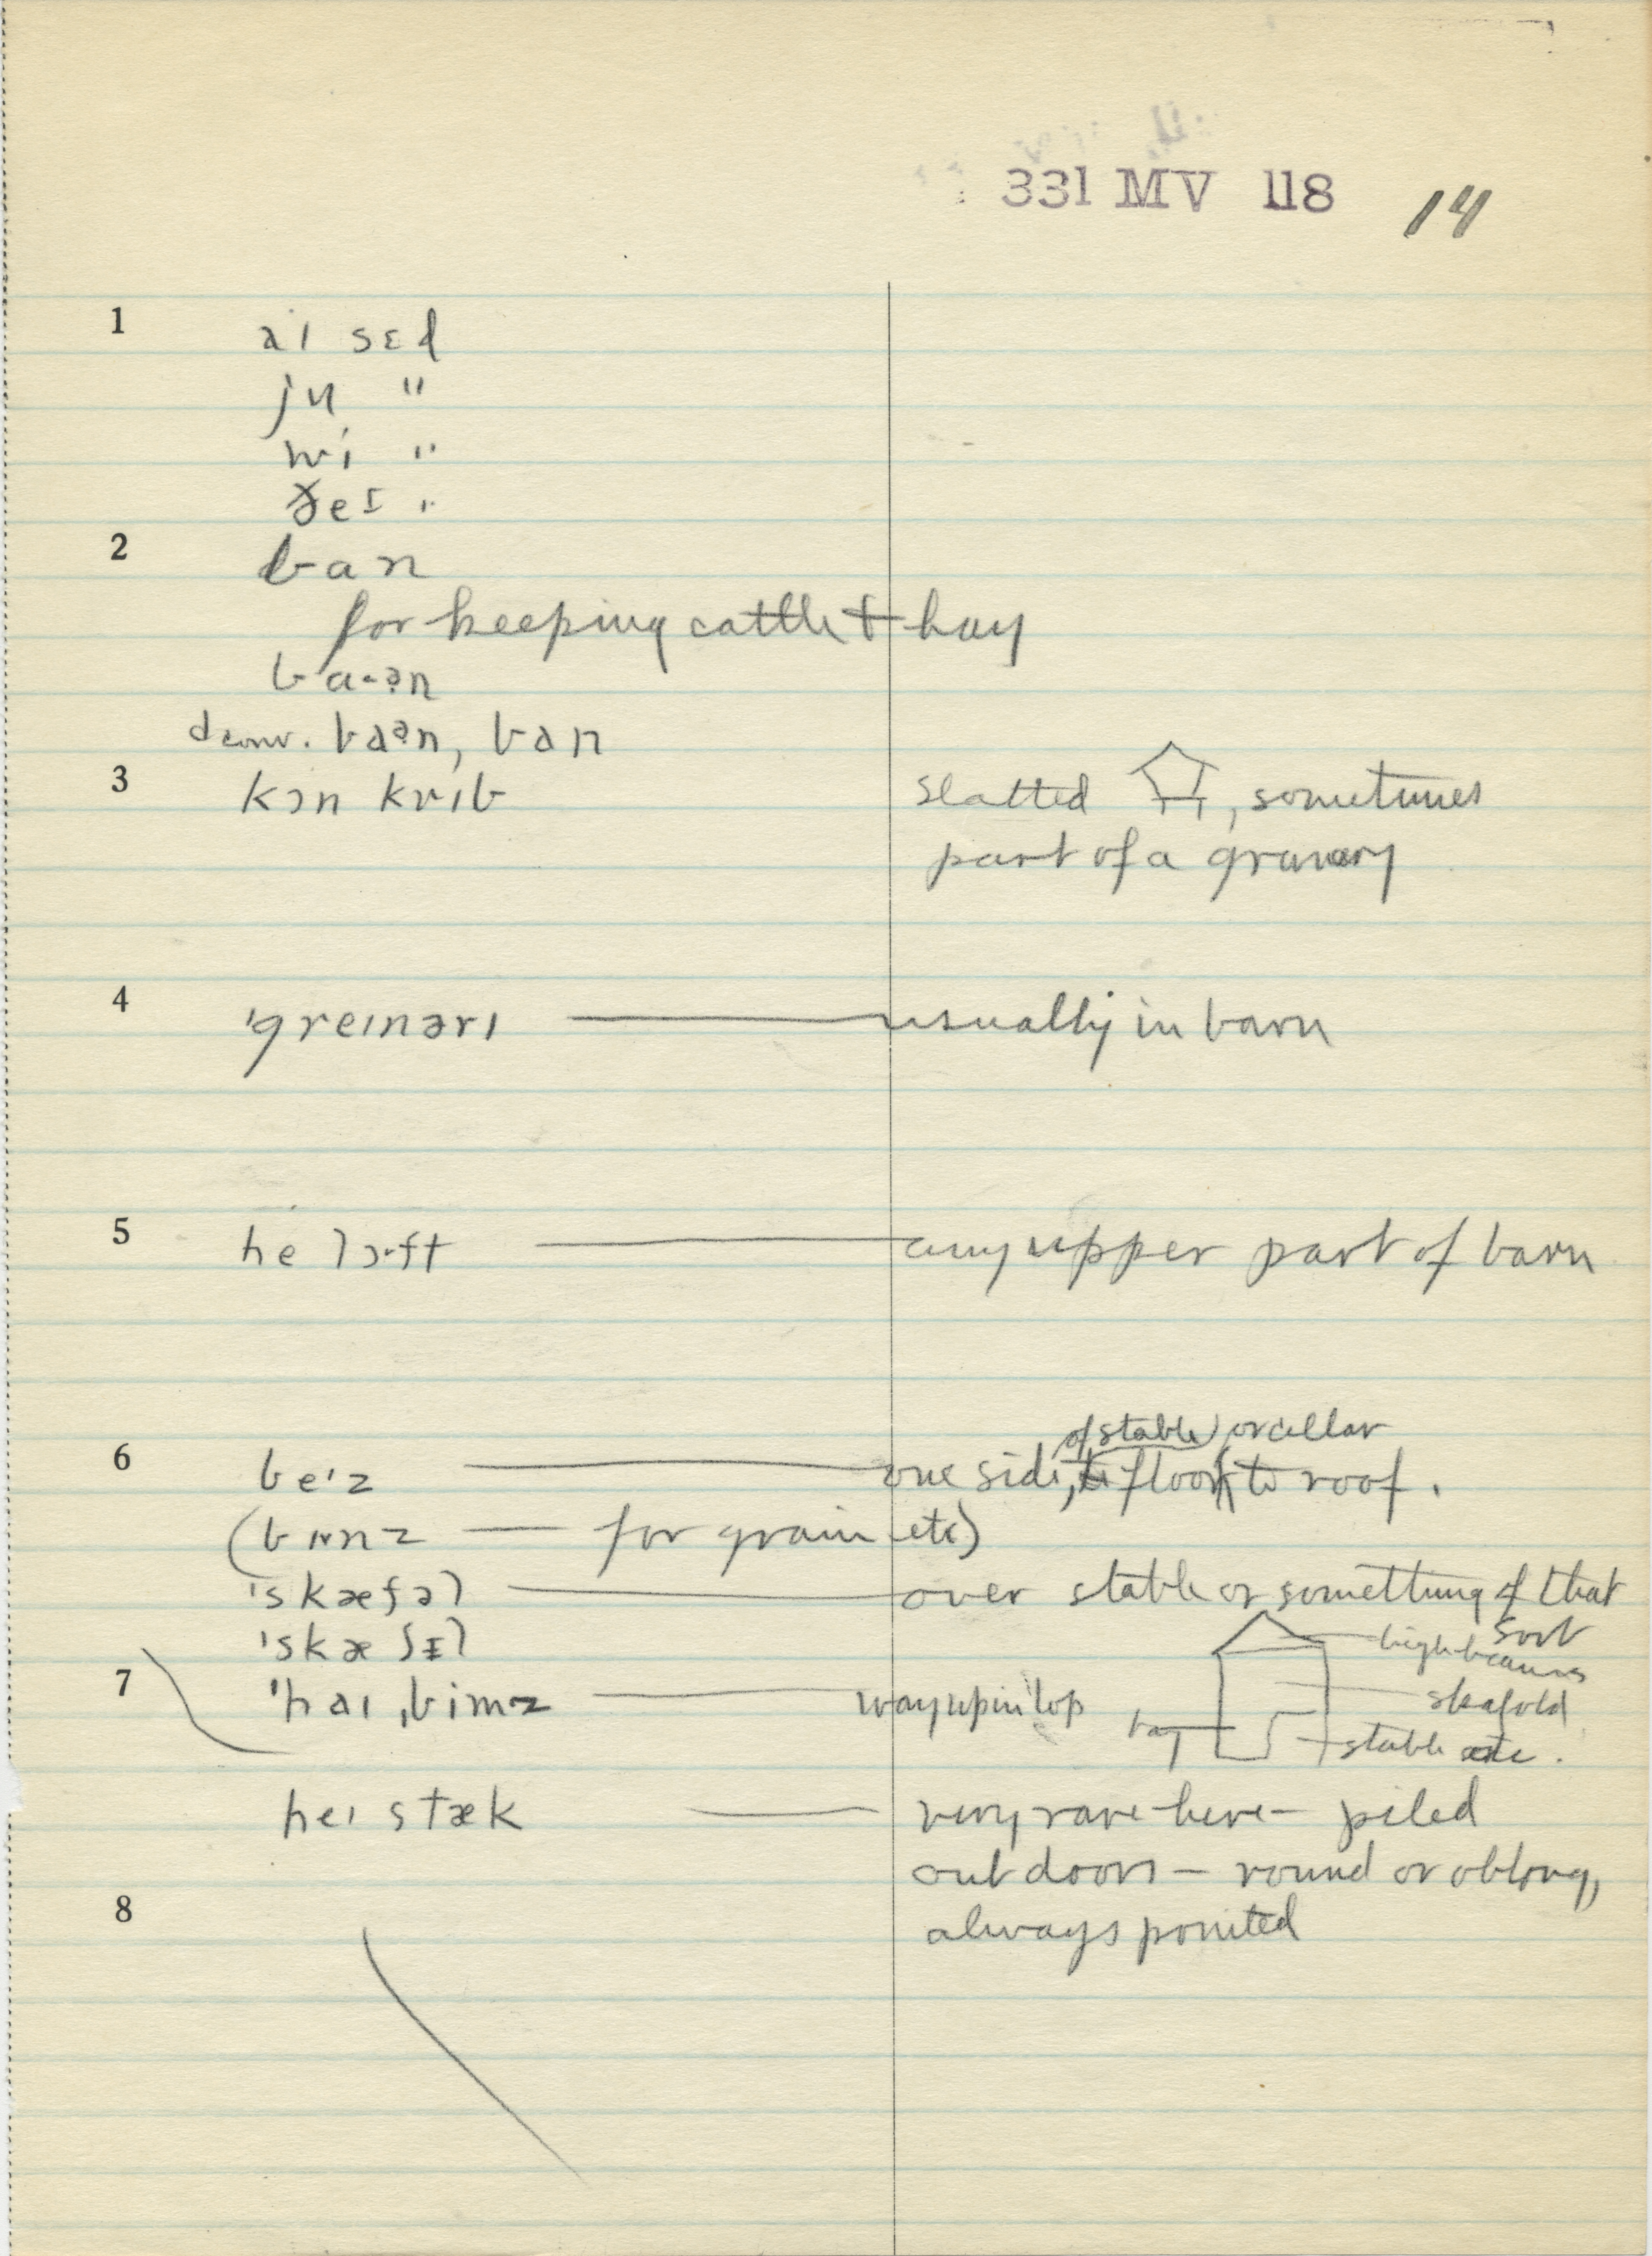 331 MV 118 14
1 aɪ sɛd
ju "
wi "
ðeɪ "
2 ban
for keeping cattle & hay
ba·ən
conv. baən, ban
3 kɔn krɪb slatted , sometimes
part of a granary
4 ˈgreɪnərɪ usually in barn
5 he lɔ·ft any upper part of barn
of stable or cellar
6 beˈz one side, floor to roof.
(bɪnz — for grain etc)
ˈskæfəl over stable or something of that
sort
ˈskæfɪl
high beams
7 ˈhaɪ ˌbimz way up in top
skafold
bay
stable etc.
heɪ stæk very rare here – piled
out doors – round or oblong,
8
always pointed